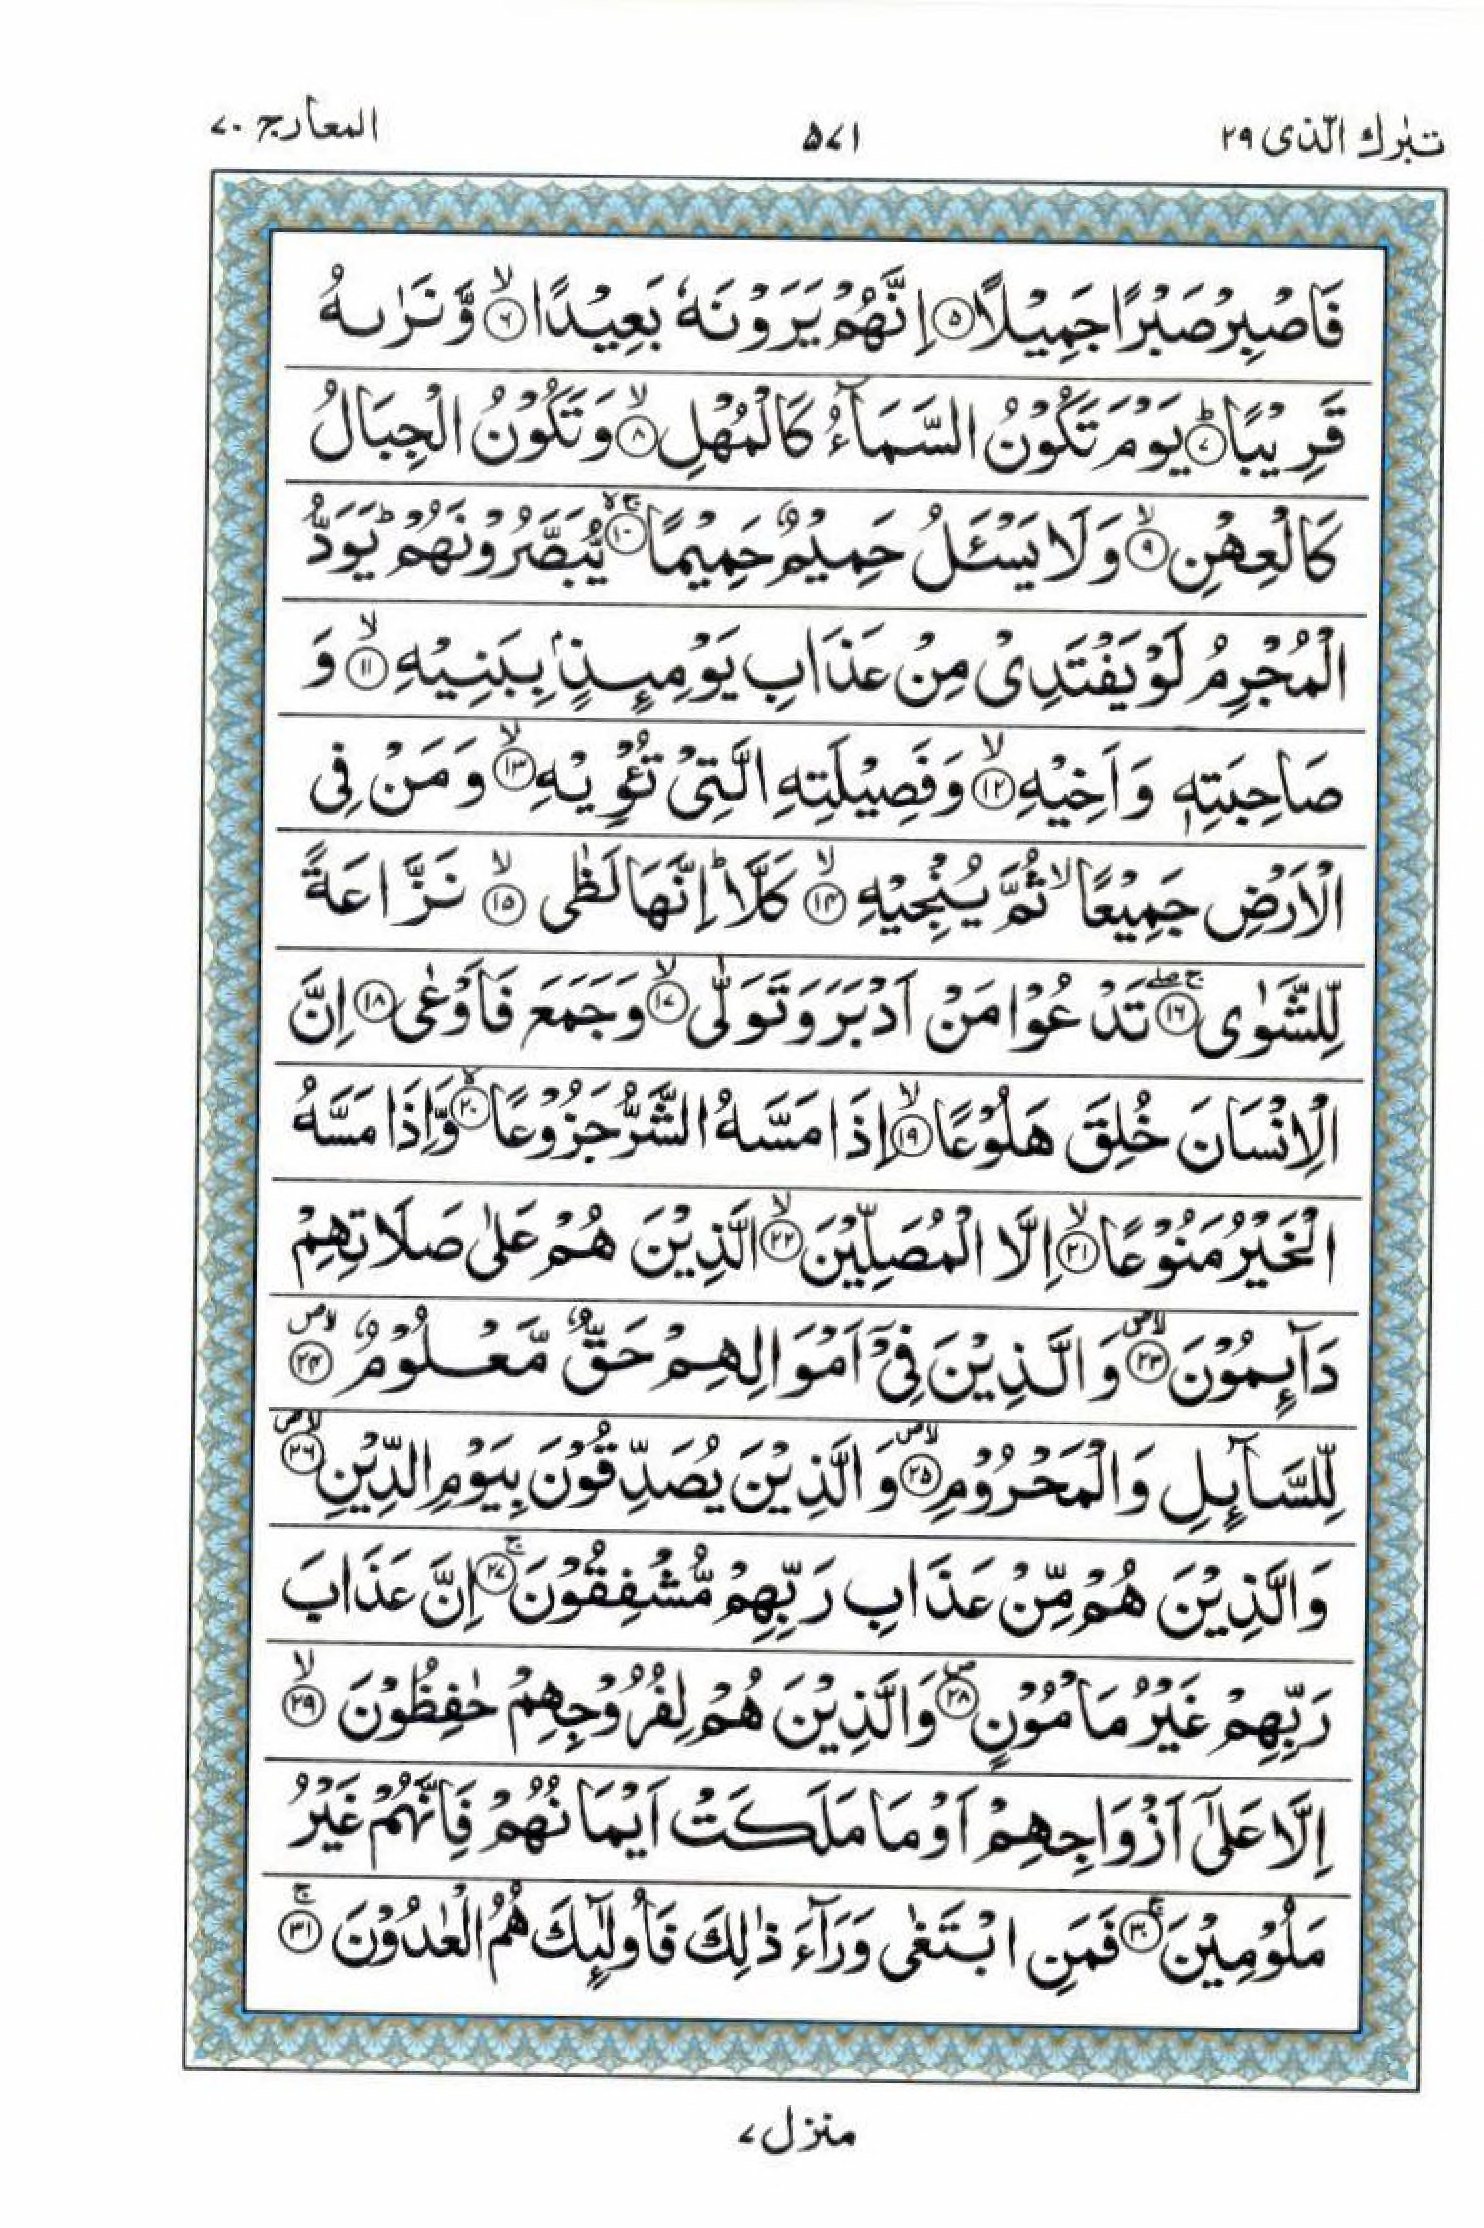 تبٰرك الّذى ٢٩
٥٧١
المعارج ٧٠
فَاصْبِرْ صَبْرًا جَمِيْلًا ۝٥ اِنَّهُمْ يَرَوْنَهٗ بَعِيْدًا ۙ۝٦ وَّنَرٰىهُ
قَرِيْبًا ؕ۝٧ يَوْمَ تَكُوْنُ السَّمَآءُ كَالْمُهْلِ ۙ۝٨ وَتَكُوْنُ الْجِبَالُ
كَالْعِهْنِ ۙ۝٩ وَلَا يَسْـَٔلُ حَمِيْمٌ حَمِيْمًا ۚۖ۝١٠ يُّبَصَّرُوْنَهُمْ ؕ يَوَدُّ
الْمُجْرِمُ لَوْ يَفْتَدِىْ مِنْ عَذَابِ يَوْمِئِذٍۭ بِبَنِيْهِ ۙ۝١١ وَ
صَاحِبَتِهٖ وَاَخِيْهِ ۙ۝١٢ وَفَصِيْلَتِهِ الَّتِىْ تُـْٔوِيْهِ ۙ۝١٣ وَمَنْ فِى
الْاَرْضِ جَمِيْعًا ۙ ثُمَّ يُنْجِيْهِ ۙ۝١٤ كَلَّا ؕ اِنَّهَا لَظٰى ۙ۝١٥ نَزَّاعَةً
لِّلشَّوٰى ۚۖ۝١٦ تَدْعُوْا مَنْ اَدْبَرَ وَتَوَلّٰى ۙ۝١٧ وَجَمَعَ فَاَوْعٰى ۝١٨ اِنَّ
الْاِنْسَانَ خُلِقَ هَلُوْعًا ۙ۝١٩ اِذَا مَسَّهُ الشَّرُّ جَزُوْعًا ۙ۝٢٠ وَّاِذَا مَسَّهُ
الْخَيْرُ مَنُوْعًا ۙ۝٢١ اِلَّا الْمُصَلِّيْنَ ۙ۝٢٢ الَّذِيْنَ هُمْ عَلٰى صَلَاتِهِمْ
دَآئِمُوْنَ ۪ۙ۝٢٣ وَالَّذِيْنَ فِىْۤ اَمْوَالِهِمْ حَقٌّ مَّعْلُوْمٌ ۪ۙ۝٢٤
لِّلسَّآئِلِ وَالْمَحْرُوْمِ ۪ۙ۝٢٥ وَالَّذِيْنَ يُصَدِّقُوْنَ بِيَوْمِ الدِّيْنِ ۪ۙ۝٢٦
وَالَّذِيْنَ هُمْ مِّنْ عَذَابِ رَبِّهِمْ مُّشْفِقُوْنَ ۚ۝٢٧ اِنَّ عَذَابَ
رَبِّهِمْ غَيْرُ مَاْمُوْنٍ ۪۝٢٨ وَالَّذِيْنَ هُمْ لِفُرُوْجِهِمْ حٰفِظُوْنَ ۙ۝٢٩
اِلَّا عَلٰٓى اَزْوَاجِهِمْ اَوْ مَا مَلَكَتْ اَيْمَانُهُمْ فَاِنَّهُمْ غَيْرُ
مَلُوْمِيْنَ ۚ۝٣٠ فَمَنِ ابْتَغٰى وَرَآءَ ذٰلِكَ فَاُولٰٓئِكَ هُمُ الْعٰدُوْنَ ۚ۝٣١
منزل ٧